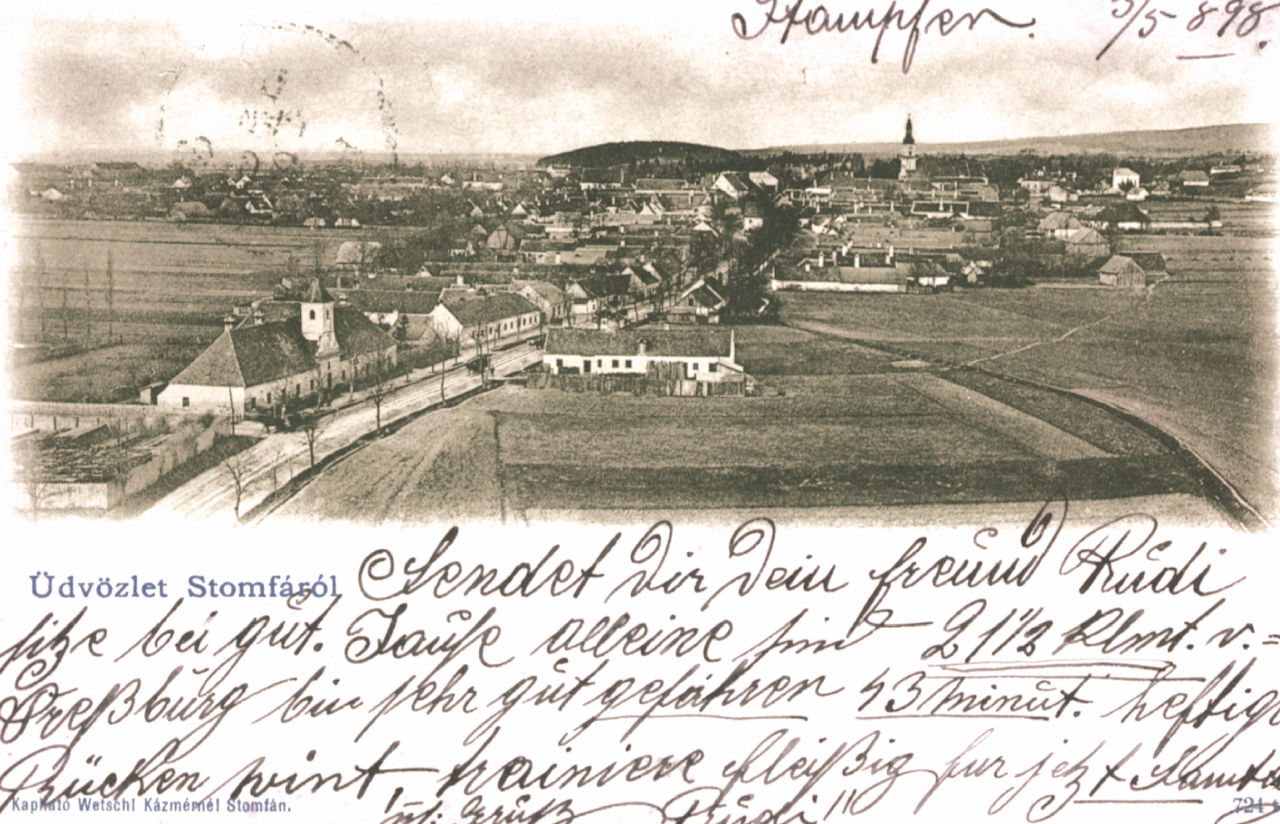 Stampfen. 3/5 898.
Üdvözlet Stomfáról
Sendet Dir Dein freund Rudi
sitze bei gut. Jause alleine sind 21 1/2 Klmt. v.
Preßburg bin sehr gut gefahren 43 minut. heftig
Rücken wint, trainiere fleißig fur jetzt
Kapható Wetschl Kázmérnél Stomfán.
Gruß Rudi
724